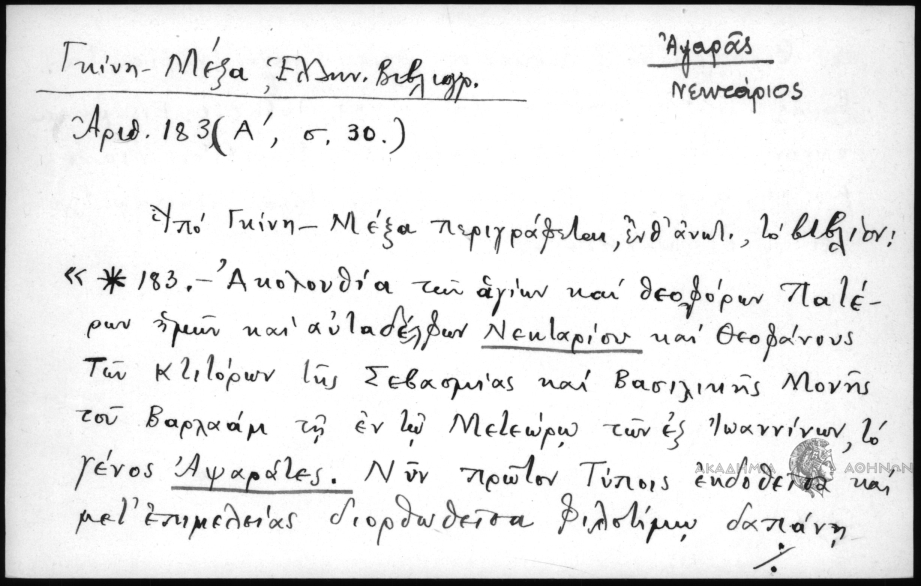 Γκίνη - Μέξα, Ἑλλην. Βιβλιογρ.
Ἀψαρᾶς
Νεκτάριος
Ἀριθ. 183 (Α΄, σ. 30.)
Ὑπό Γκίνη - Μέξα περιγράφεται, ἔνθ' ἀνωτ., τό βιβλίον:
« * 183. - Ἀκολουθία τῶν ἁγίων καί θεοφόρων Πατέ-
ρων ἡμῶν καί αὐταδέλφων Νεκταρίου καί Θεοφάνους
Τῶν Κτιτόρων τῆς Σεβασμίας καί Βασιλικῆς Μονῆς
τοῦ Βαρλαάμ τῇ ἐν τῷ Μετεώρῳ τῶν ἐξ Ἰωαννίνων, τό
γένος Ἀψαράτες. Νῦν πρῶτον Τύποις ἐκδοθεῖσα καί
μετ' ἐπιμελείας διορθωθεῖσα φιλοτίμῳ δαπάνῃ
÷
ΑΚΑΔΗΜΙΑ ΑΘΗΝΩΝ